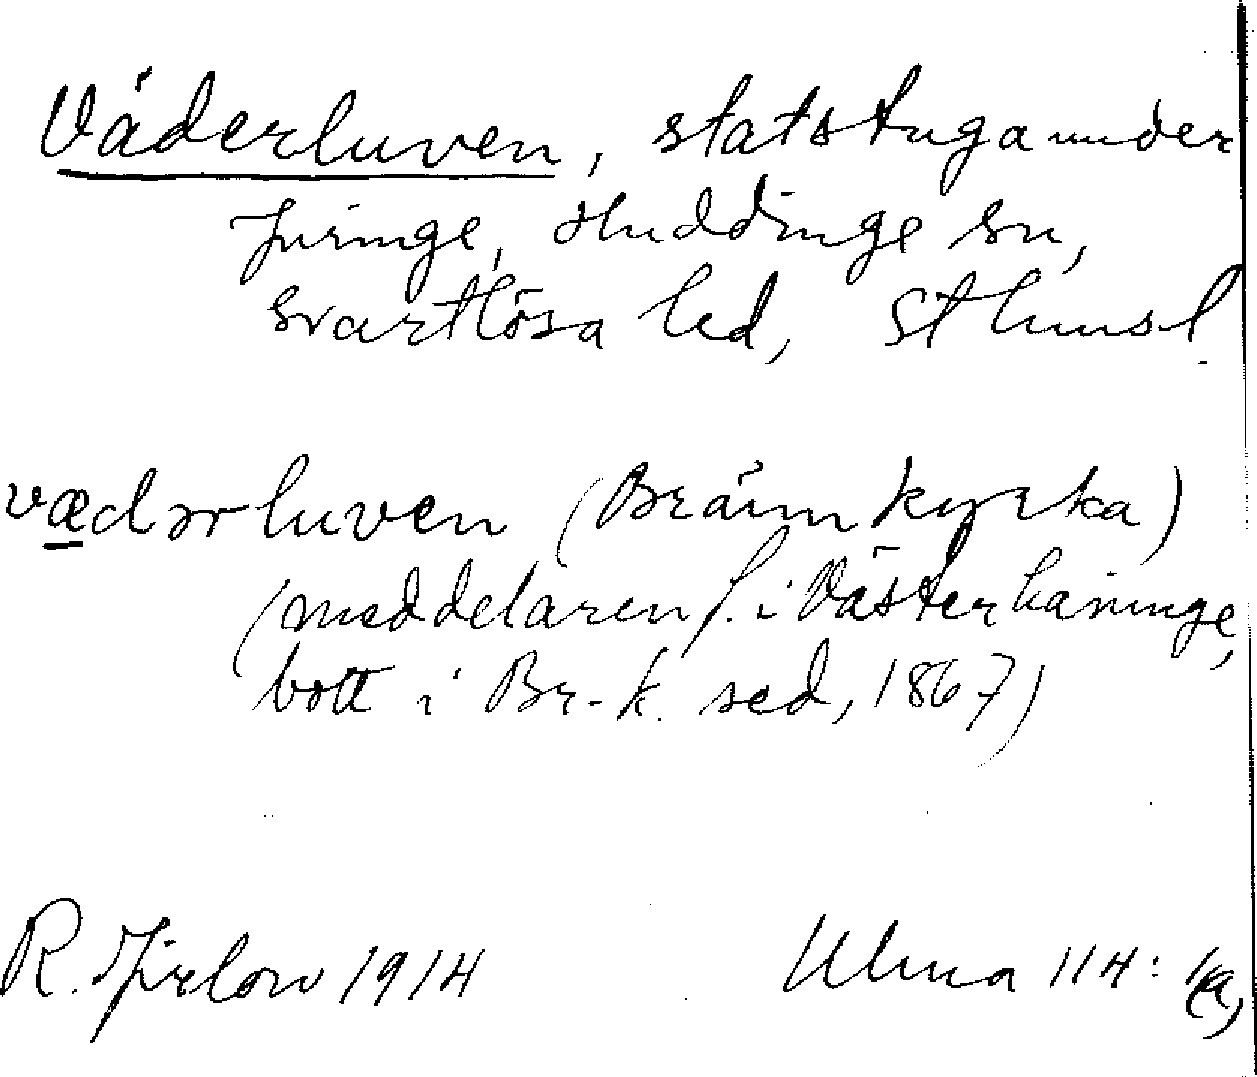 Väderluven, statstuga under
Juringe, Huddinge sn,
Svartlösa hd, Sthmsl.
vædərluven (Brännkyrka)
(meddelaren f. i Västerhaninge,
bott i Br-k. sed, 1867)
R. Jirlow 1914
Ulma 114: